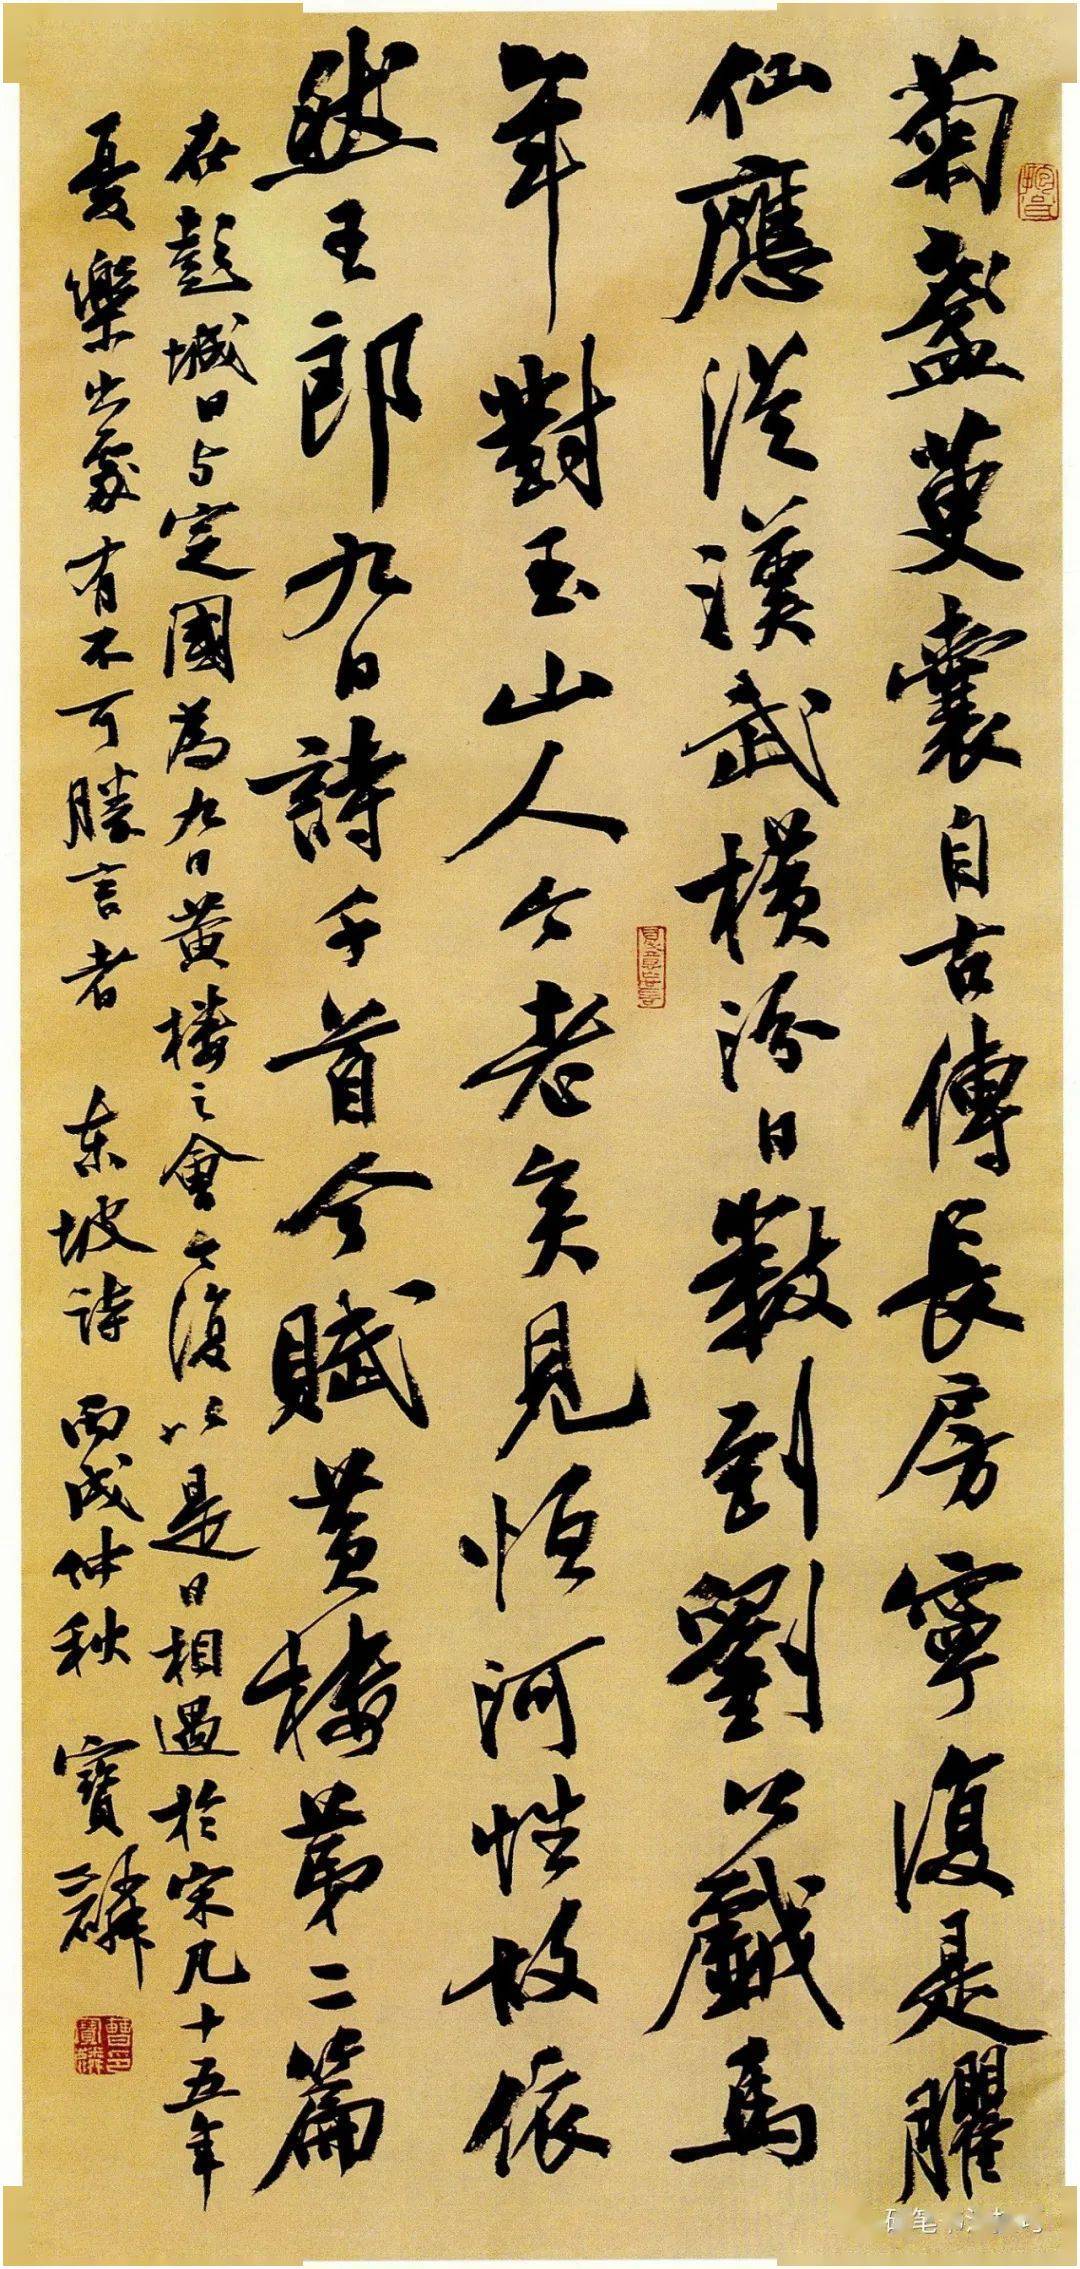 菊盞萸囊自古傳長房寧復是臞
仙應從漢武橫汾日數到劉公戲馬
年對玉山人今老矣見恒河性故依
然王郎九日詩千首今賦黃樓第二篇
在彭城日与定國為九日黃樓之會今復以是日相遇於宋凡十五年
憂樂出處有不可勝言者 東坡詩 丙戌仲秋 寶麟
曹寶麟印